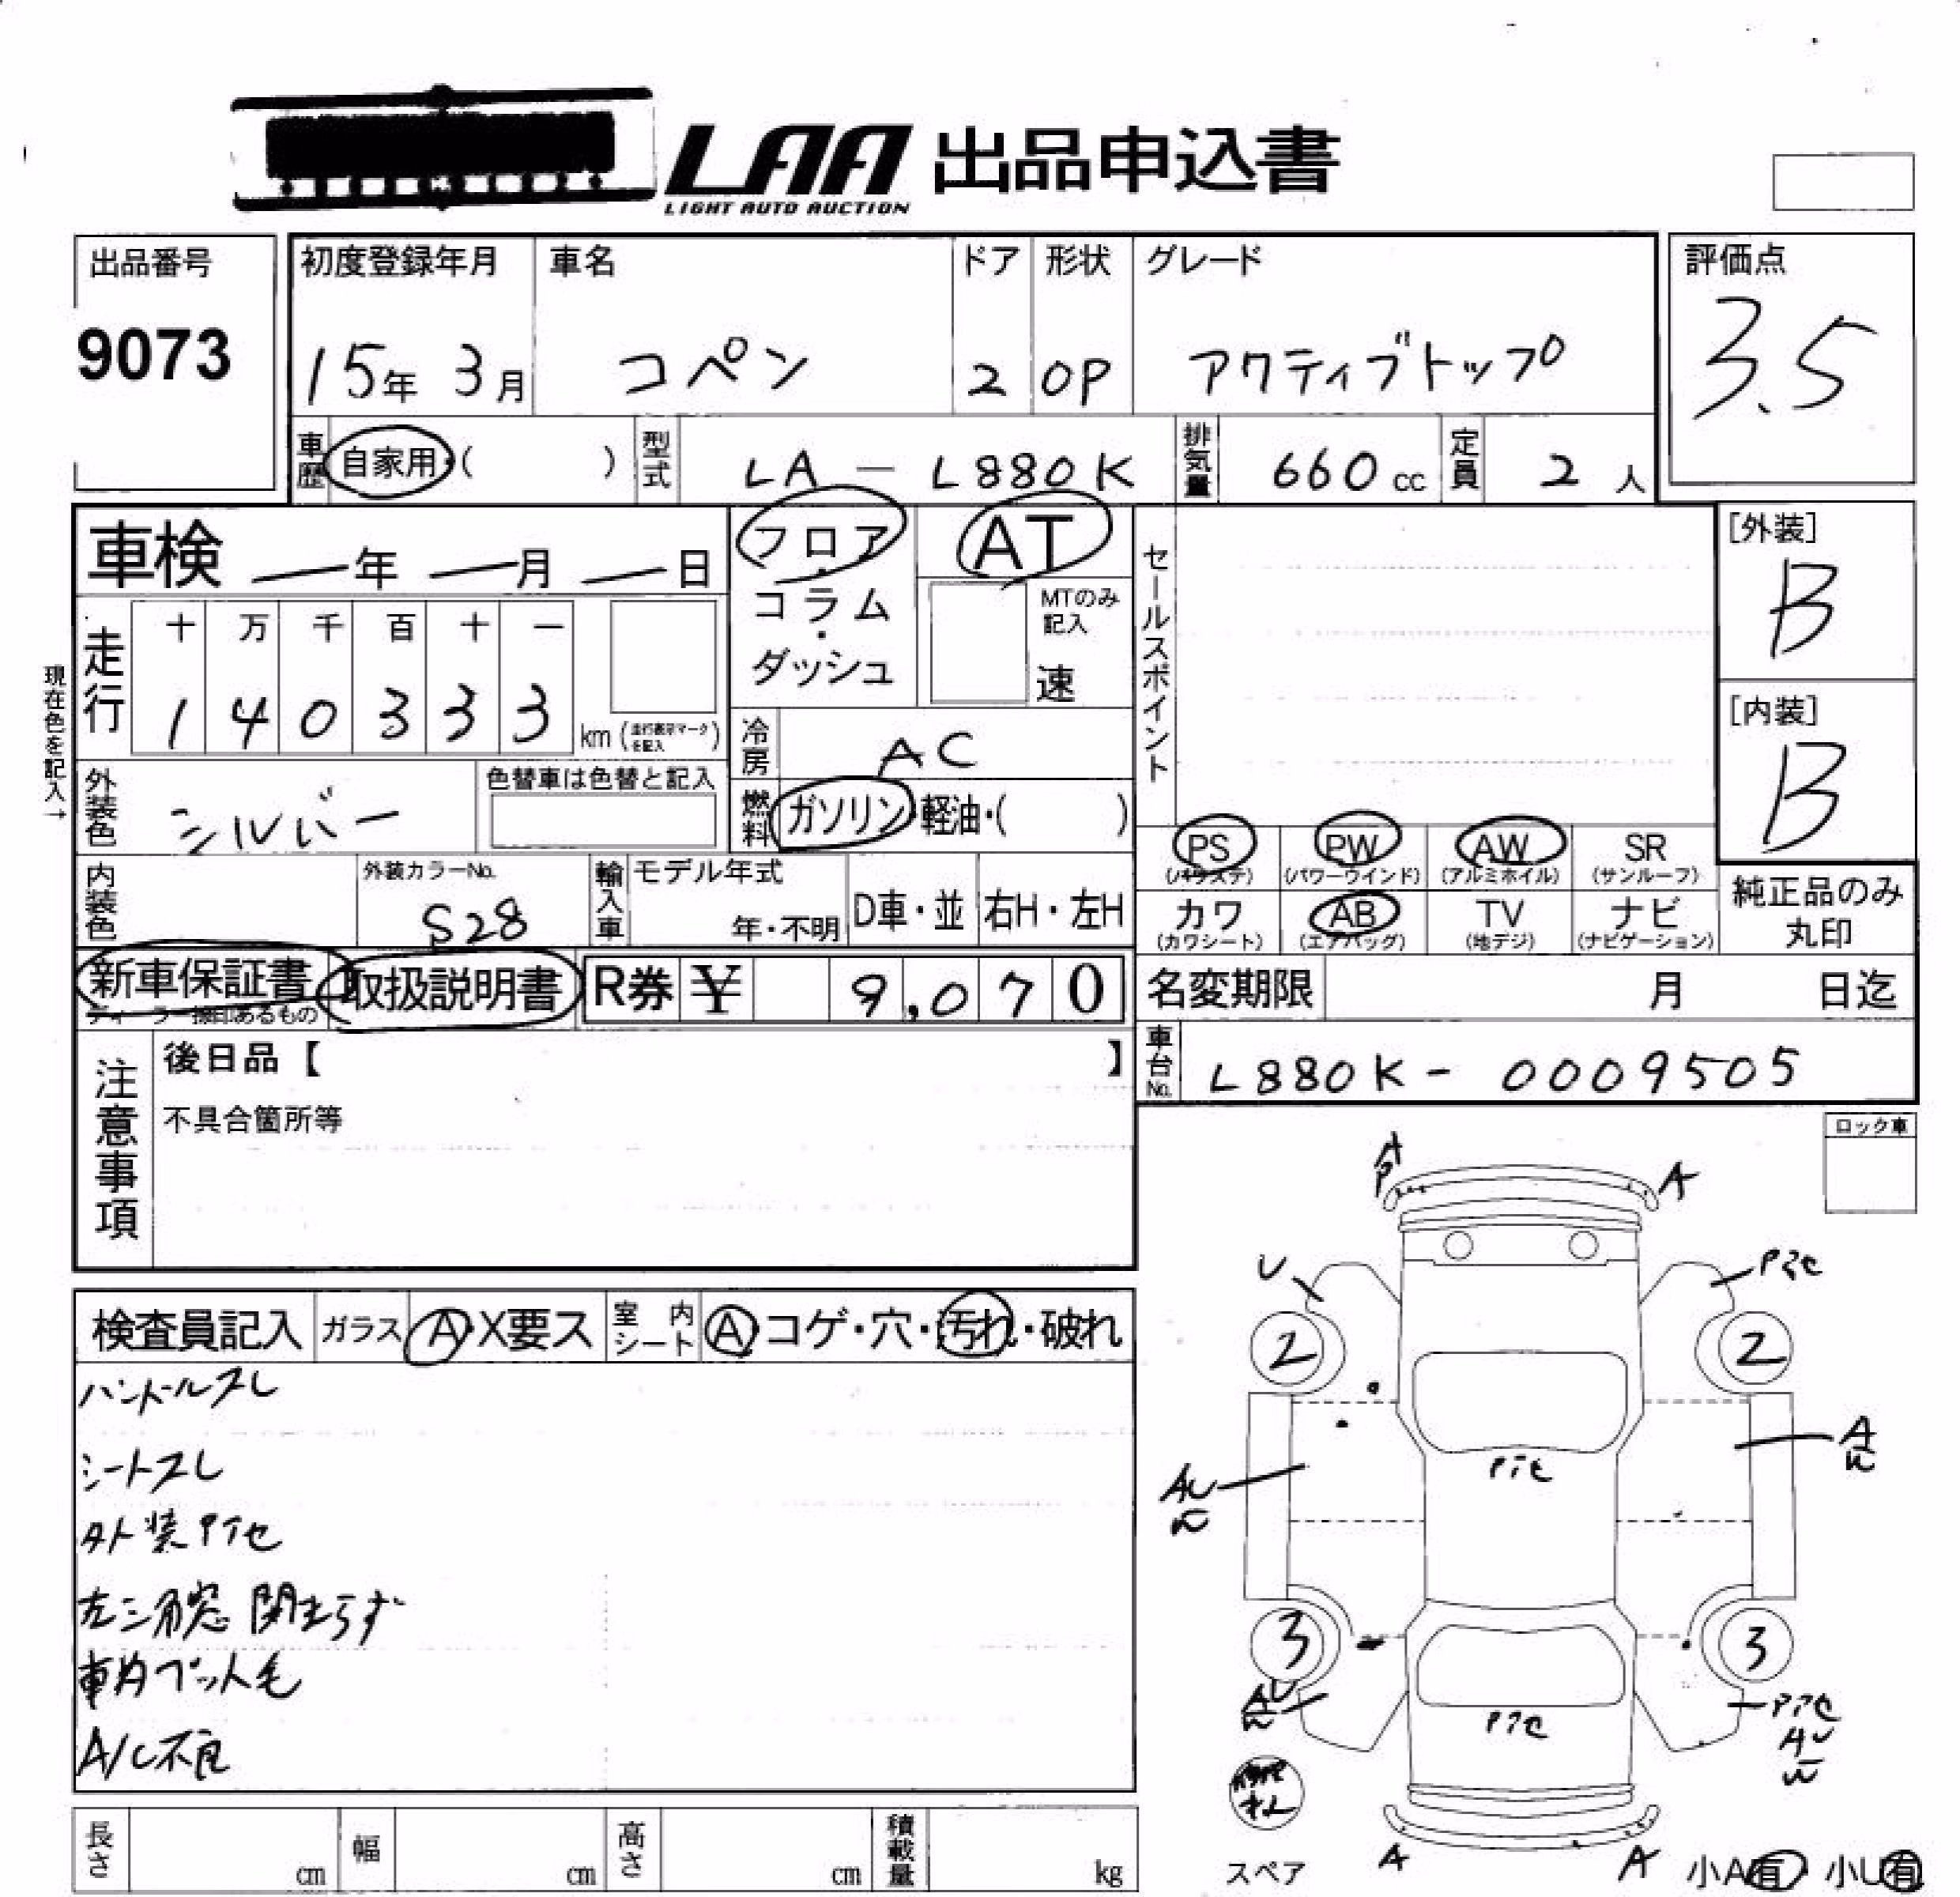 LAA 出品申込書
LIGHT AUTO AUCTION
出品番号
9073
初度登録年月 車名 ドア 形状 グレード
15年 3月 コペン 2 OP アクティブトップ
評価点
3.5
車歴 自家用・( ) 型式 LA - L880K 排気量 660cc 定員 2人
車検 ―年 ―月 ―日
フロア・コラム・ダッシュ
AT
MTのみ記入
速
セールスポイント
[外装]
B
[内装]
B
現在色を記入→
走行 十 万 千 百 十 一
1 4 0 3 3 3 km (走行表示マークを記入)
冷房 AC
外装色 シルバー 色替車は色替と記入
燃料 ガソリン・軽油・( )
PS (パワステ) PW (パワーウインド) AW (アルミホイル) SR (サンルーフ)
カワ (カワシート) AB (エアバッグ) TV (地デジ) ナビ (ナビゲーション)
純正品のみ丸印
内装色 外装カラーNo. S28 輸入車 モデル年式 年・不明 D車・並 右H・左H
新車保証書 取扱説明書 R券 ¥ 9,070
ディーラー捺印あるもの
名変期限 月 日迄
車台No. L880K- 0009505
注意事項
後日品【 】
不具合箇所等
ロック車
検査員記入 ガラス A・X要ス 室内シート A・コゲ・穴・汚れ・破れ
ハンドルスレ
シートスレ
外装PTセ
左三角窓 閉まらず
車内ペット毛
A/C不良
A
P
A
U
2
2
A
AU
3
3
AU
AU
A
A
スペア
小A有 小U有
長さ cm 幅 cm 高さ cm 積載量 kg